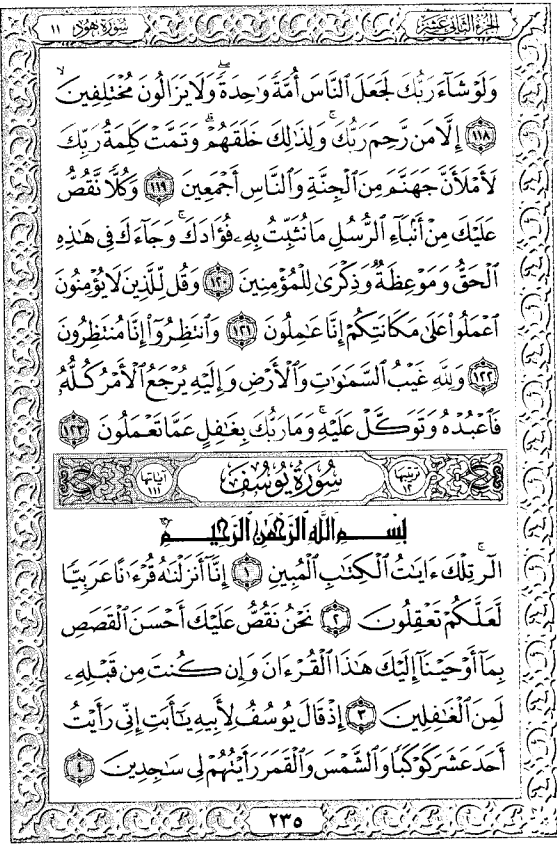 الجزء الثاني عشر
سورة هود ١١
وَلَوْ شَآءَ رَبُّكَ لَجَعَلَ ٱلنَّاسَ أُمَّةً وَٰحِدَةً ۖ وَلَا يَزَالُونَ مُخْتَلِفِينَ
١١٨ إِلَّا مَن رَّحِمَ رَبُّكَ ۚ وَلِذَٰلِكَ خَلَقَهُمْ ۗ وَتَمَّتْ كَلِمَةُ رَبِّكَ
لَأَمْلَأَنَّ جَهَنَّمَ مِنَ ٱلْجِنَّةِ وَٱلنَّاسِ أَجْمَعِينَ ١١٩ وَكُلًّا نَّقُصُّ
عَلَيْكَ مِنْ أَنۢبَآءِ ٱلرُّسُلِ مَا نُثَبِّتُ بِهِۦ فُؤَادَكَ ۚ وَجَآءَكَ فِى هَٰذِهِ
ٱلْحَقُّ وَمَوْعِظَةٌ وَذِكْرَىٰ لِلْمُؤْمِنِينَ ١٢٠ وَقُل لِّلَّذِينَ لَا يُؤْمِنُونَ
ٱعْمَلُوا۟ عَلَىٰ مَكَانَتِكُمْ إِنَّا عَٰمِلُونَ ١٢١ وَٱنتَظِرُوٓا۟ إِنَّا مُنتَظِرُونَ
١٢٢ وَلِلَّهِ غَيْبُ ٱلسَّمَٰوَٰتِ وَٱلْأَرْضِ وَإِلَيْهِ يُرْجَعُ ٱلْأَمْرُ كُلُّهُۥ
فَٱعْبُدْهُ وَتَوَكَّلْ عَلَيْهِ ۚ وَمَا رَبُّكَ بِغَٰفِلٍ عَمَّا تَعْمَلُونَ ١٢٣
ترتيبها ١٢ سورة يوسف آياتها ١١١
بِسْمِ ٱللَّهِ ٱلرَّحْمَٰنِ ٱلرَّحِيمِ
الٓر ۚ تِلْكَ ءَايَٰتُ ٱلْكِتَٰبِ ٱلْمُبِينِ ١ إِنَّآ أَنزَلْنَٰهُ قُرْءَٰنًا عَرَبِيًّا
لَّعَلَّكُمْ تَعْقِلُونَ ٢ نَحْنُ نَقُصُّ عَلَيْكَ أَحْسَنَ ٱلْقَصَصِ
بِمَآ أَوْحَيْنَآ إِلَيْكَ هَٰذَا ٱلْقُرْءَانَ وَإِن كُنتَ مِن قَبْلِهِۦ
لَمِنَ ٱلْغَٰفِلِينَ ٣ إِذْ قَالَ يُوسُفُ لِأَبِيهِ يَٰٓأَبَتِ إِنِّى رَأَيْتُ
أَحَدَ عَشَرَ كَوْكَبًا وَٱلشَّمْسَ وَٱلْقَمَرَ رَأَيْتُهُمْ لِى سَٰجِدِينَ ٤
٢٣٥